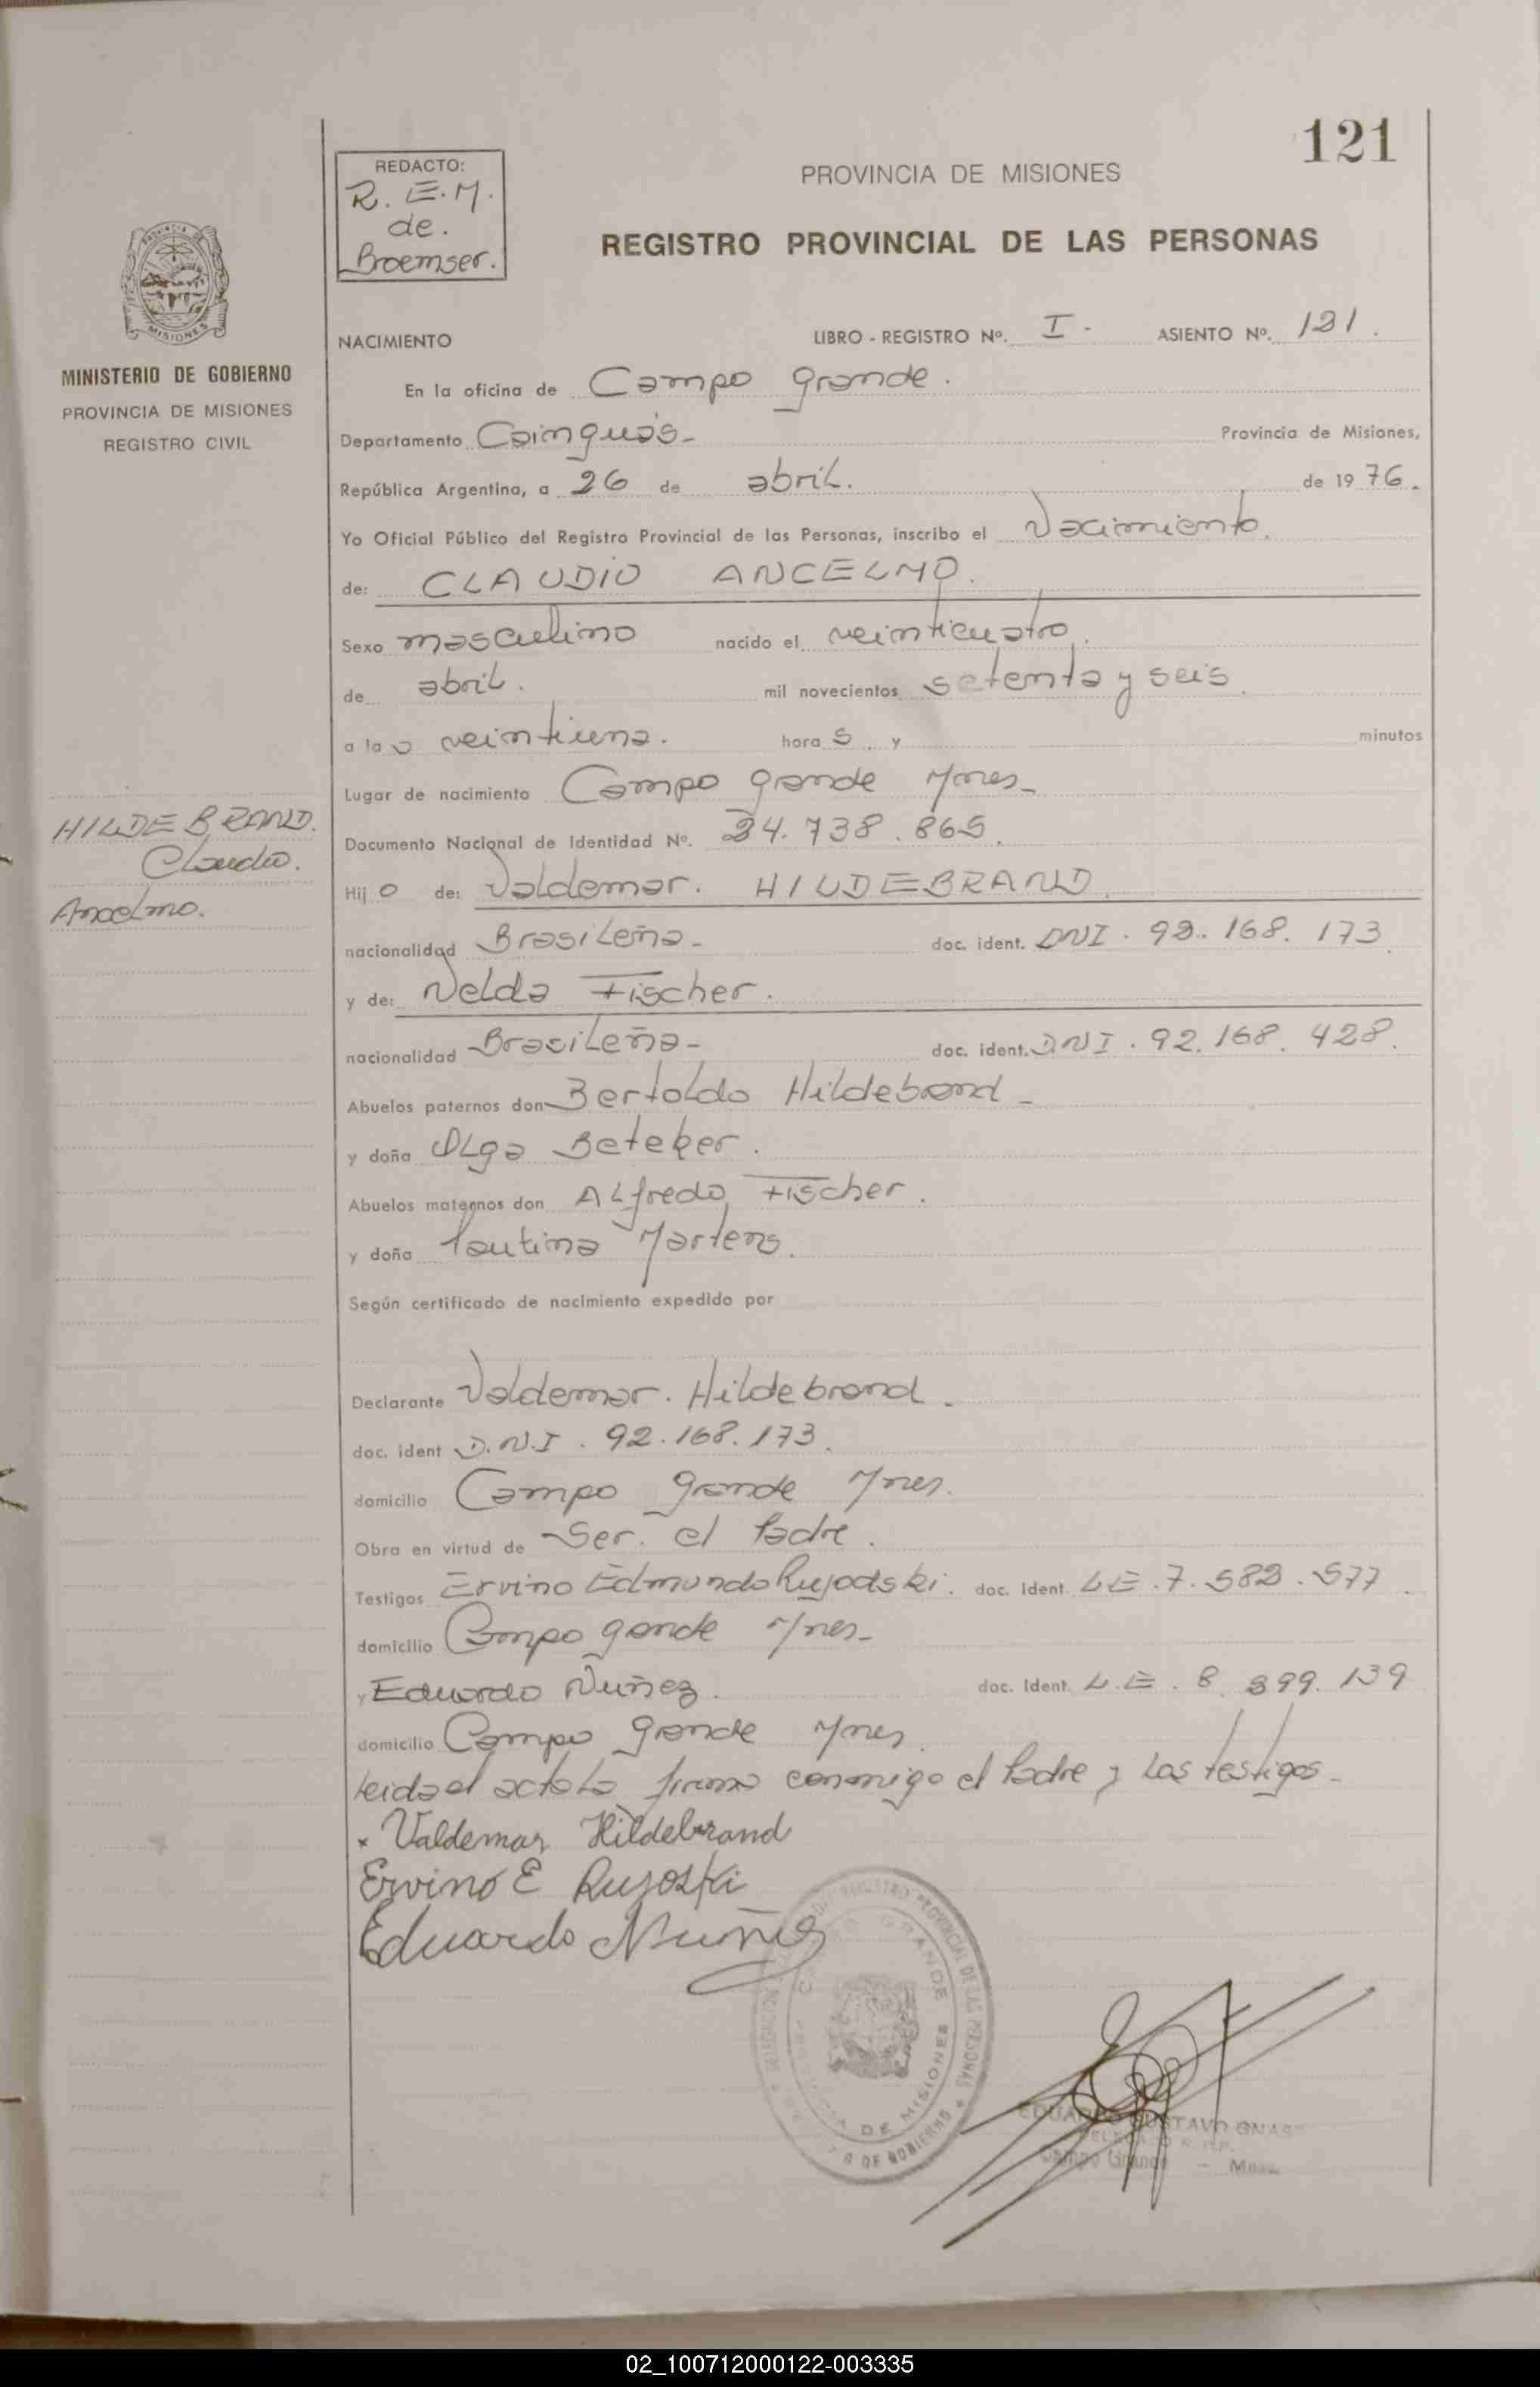 121
REDACTO:
R. E. M.
de.
Broemser.
PROVINCIA DE MISIONES
REGISTRO PROVINCIAL DE LAS PERSONAS
MISIONES
MINISTERIO DE GOBIERNO
PROVINCIA DE MISIONES
REGISTRO CIVIL
NACIMIENTO LIBRO - REGISTRO Nº. I - ASIENTO Nº. 121.
En la oficina de Campo grande.
Departamento Cainguás- Provincia de Misiones,
República Argentina, a 26 de abril. de 1976.
Yo Oficial Público del Registro Provincial de las Personas, inscribo el Nacimiento.
de: CLAUDIO ANCELMO.
Sexo masculino nacido el veinticuatro.
de abril. mil novecientos setenta y seis.
a la s veintiuna. hora s. y minutos
Lugar de nacimiento Campo grande Mnes-
HILDEBRAND.
Claudio.
Ancelmo.
Documento Nacional de Identidad Nº. 24.738.865.
Hij o de: Valdemar. HILDEBRAND.
nacionalidad Brasileña- doc. ident. DNI. 92.168.173
y de: Nelda Fischer.
nacionalidad Brasileña- doc. ident. DNI. 92.168.428.
Abuelos paternos don Bertoldo Hildebrand-
y doña Olga Beteker.
Abuelos maternos don Alfredo Fischer.
y doña Pautina Martens.
Según certificado de nacimiento expedido por
Declarante Valdemar. Hildebrand.
doc. ident D.N.I. 92.168.173.
domicilio Campo grande Mnes.
Obra en virtud de Ser. el Padre.
Testigos Ervino Edmundo Rujodski. doc. Ident. LE. 7.582.577.
domicilio Campo gande Mnes-
y Eduardo Nuñez. doc. Ident. L.E. 8.399.139
domicilio Campo grande Mnes.
leida el acta la firma conmigo el Padre y los testigos-
x Valdemar Hildebrand
Ervino E Rujoski
Eduardo Nuñez
REGISTRO PROVINCIAL DE LAS PERSONAS
GRANDE
DE MISIONES
DE GOBIERNO
EDUARDO GUSTAVO
Campo Grande
02_100712000122-003335